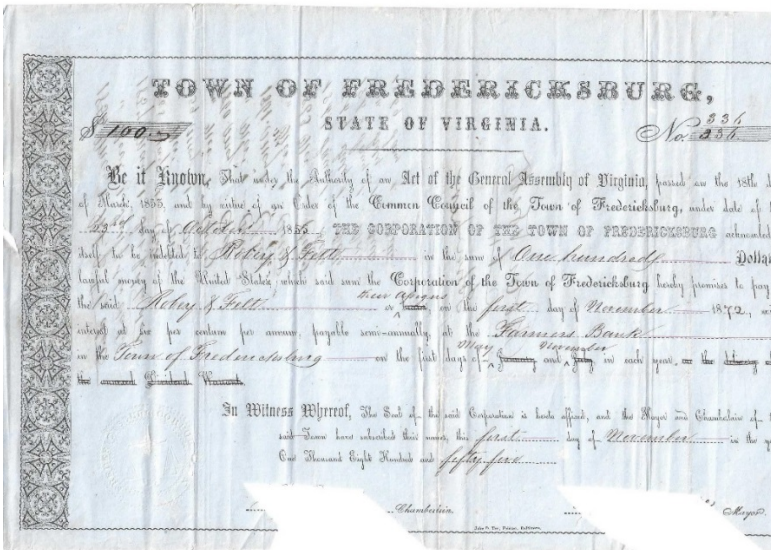 TOWN OF FREDERICKSBURG,
STATE OF VIRGINIA.
$ 100.
No. 336
336
Be it Known, That under the Authority of an Act of the General Assembly of Virginia, passed on the 18th
of March, 1853, and by virtue of an Order of the Common Council of the Town of Fredericksburg, under date of
23rd day of October 1855, THE CORPORATION OF THE TOWN OF FREDERICKSBURG
itself to be indebted to Robey & Felt in the sum of One hundred Dolla
lawful money of the United States, which said sum the Corporation of the Town of Fredericksburg hereby promises to pay
the said Robey & Felt or their assigns on the first day of November 1872,
interest at six per centum per annum, payable semi-annually, at the Farmers Bank
in the Town of Fredericksburg on the first days of January May and July November in each year, on the
the annexed Dividend Warrant.
In Witness Whereof, The Seal of the said Corporation is hereto affixed, and the Mayor and Chamberlain of
said Town have subscribed their names, this first day of November in the
One Thousand Eight Hundred and fifty five
Chamberlain. Mayor.